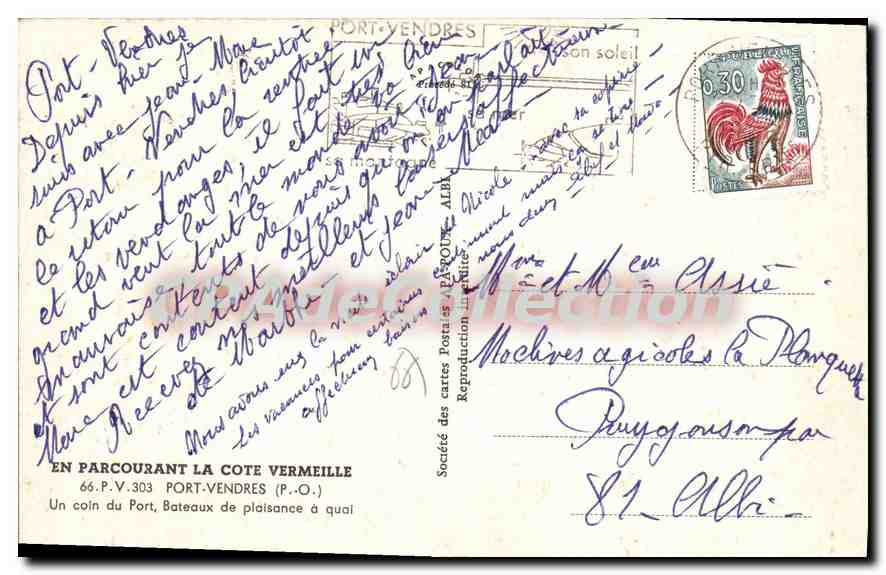 PORT-VENDRES
son soleil
sa mer
sa montagne
REPUBLIQUE FRANÇAISE
0,30
POSTES
Port-Vendres
Depuis hier je
suis avec Jean-Marc
a Port-Vendres bientôt
le retour pour la rentrée
et les vendanges, il fait un
grand vent la mer est très
mauvaise tout le monde va bien
et sont contents de nous avoir "Jean
Marc est content depuis qu'on en parlait
Recevez nos meilleurs baisers affectueux
de et Jean-Marc
Nous avons eu la visite éclair de Nicole avec sa copine
les vacances pour certaines
affectueux baisers à nous deux
Mme et M Assié
Machines agricoles la Planquette
Puygouzon par
81 - Albi -
Société des cartes Postales PA-POUX - ALBI
Reproduction Interdite
CPADeCollection
EN PARCOURANT LA COTE VERMEILLE
66.P.V.303 PORT-VENDRES (P.-O.)
Un coin du Port, Bateaux de plaisance à quai